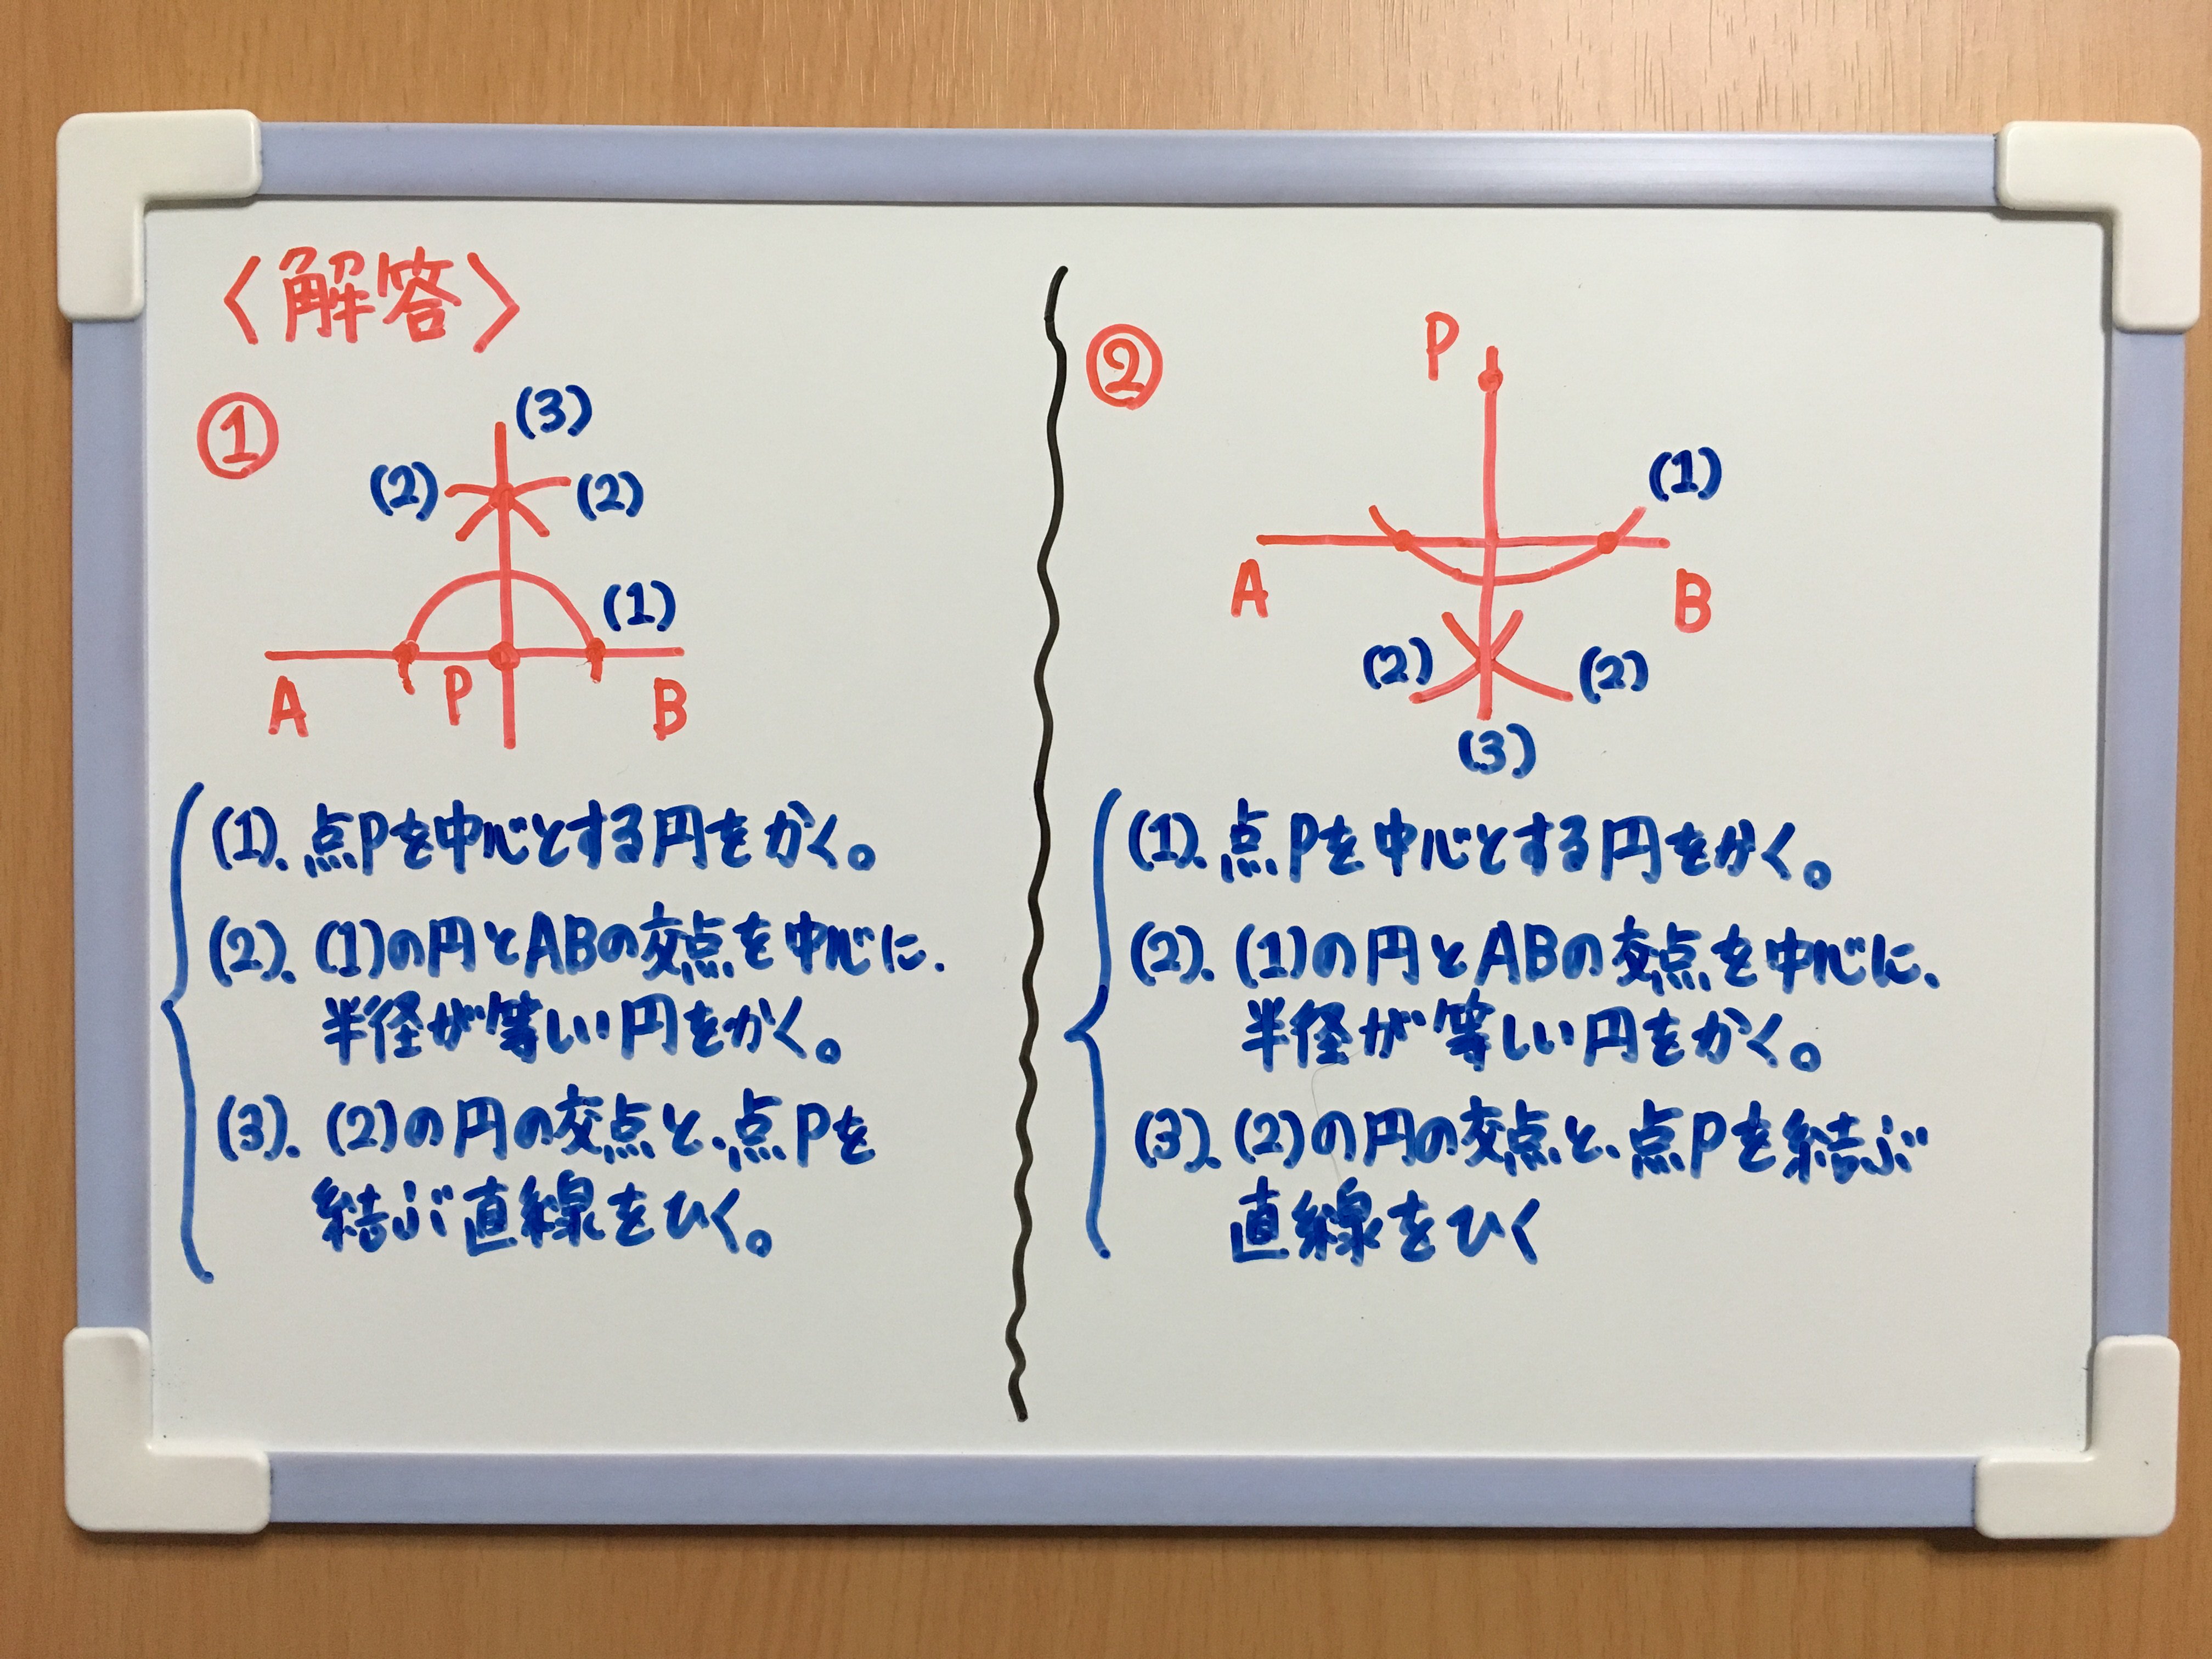 〈解答〉
①
(3)
(2) (2)
(1)
A P B
(1). 点Pを中心とする円をかく。
(2). (1)の円とABの交点を中心に、
半径が等しい円をかく。
(3). (2)の円の交点と、点Pを
結ぶ直線をひく。
②
P
(1)
A B
(2) (2)
(3)
(1). 点Pを中心とする円をかく。
(2). (1)の円とABの交点を中心に、
半径が等しい円をかく。
(3). (2)の円の交点と、点Pを結ぶ
直線をひく